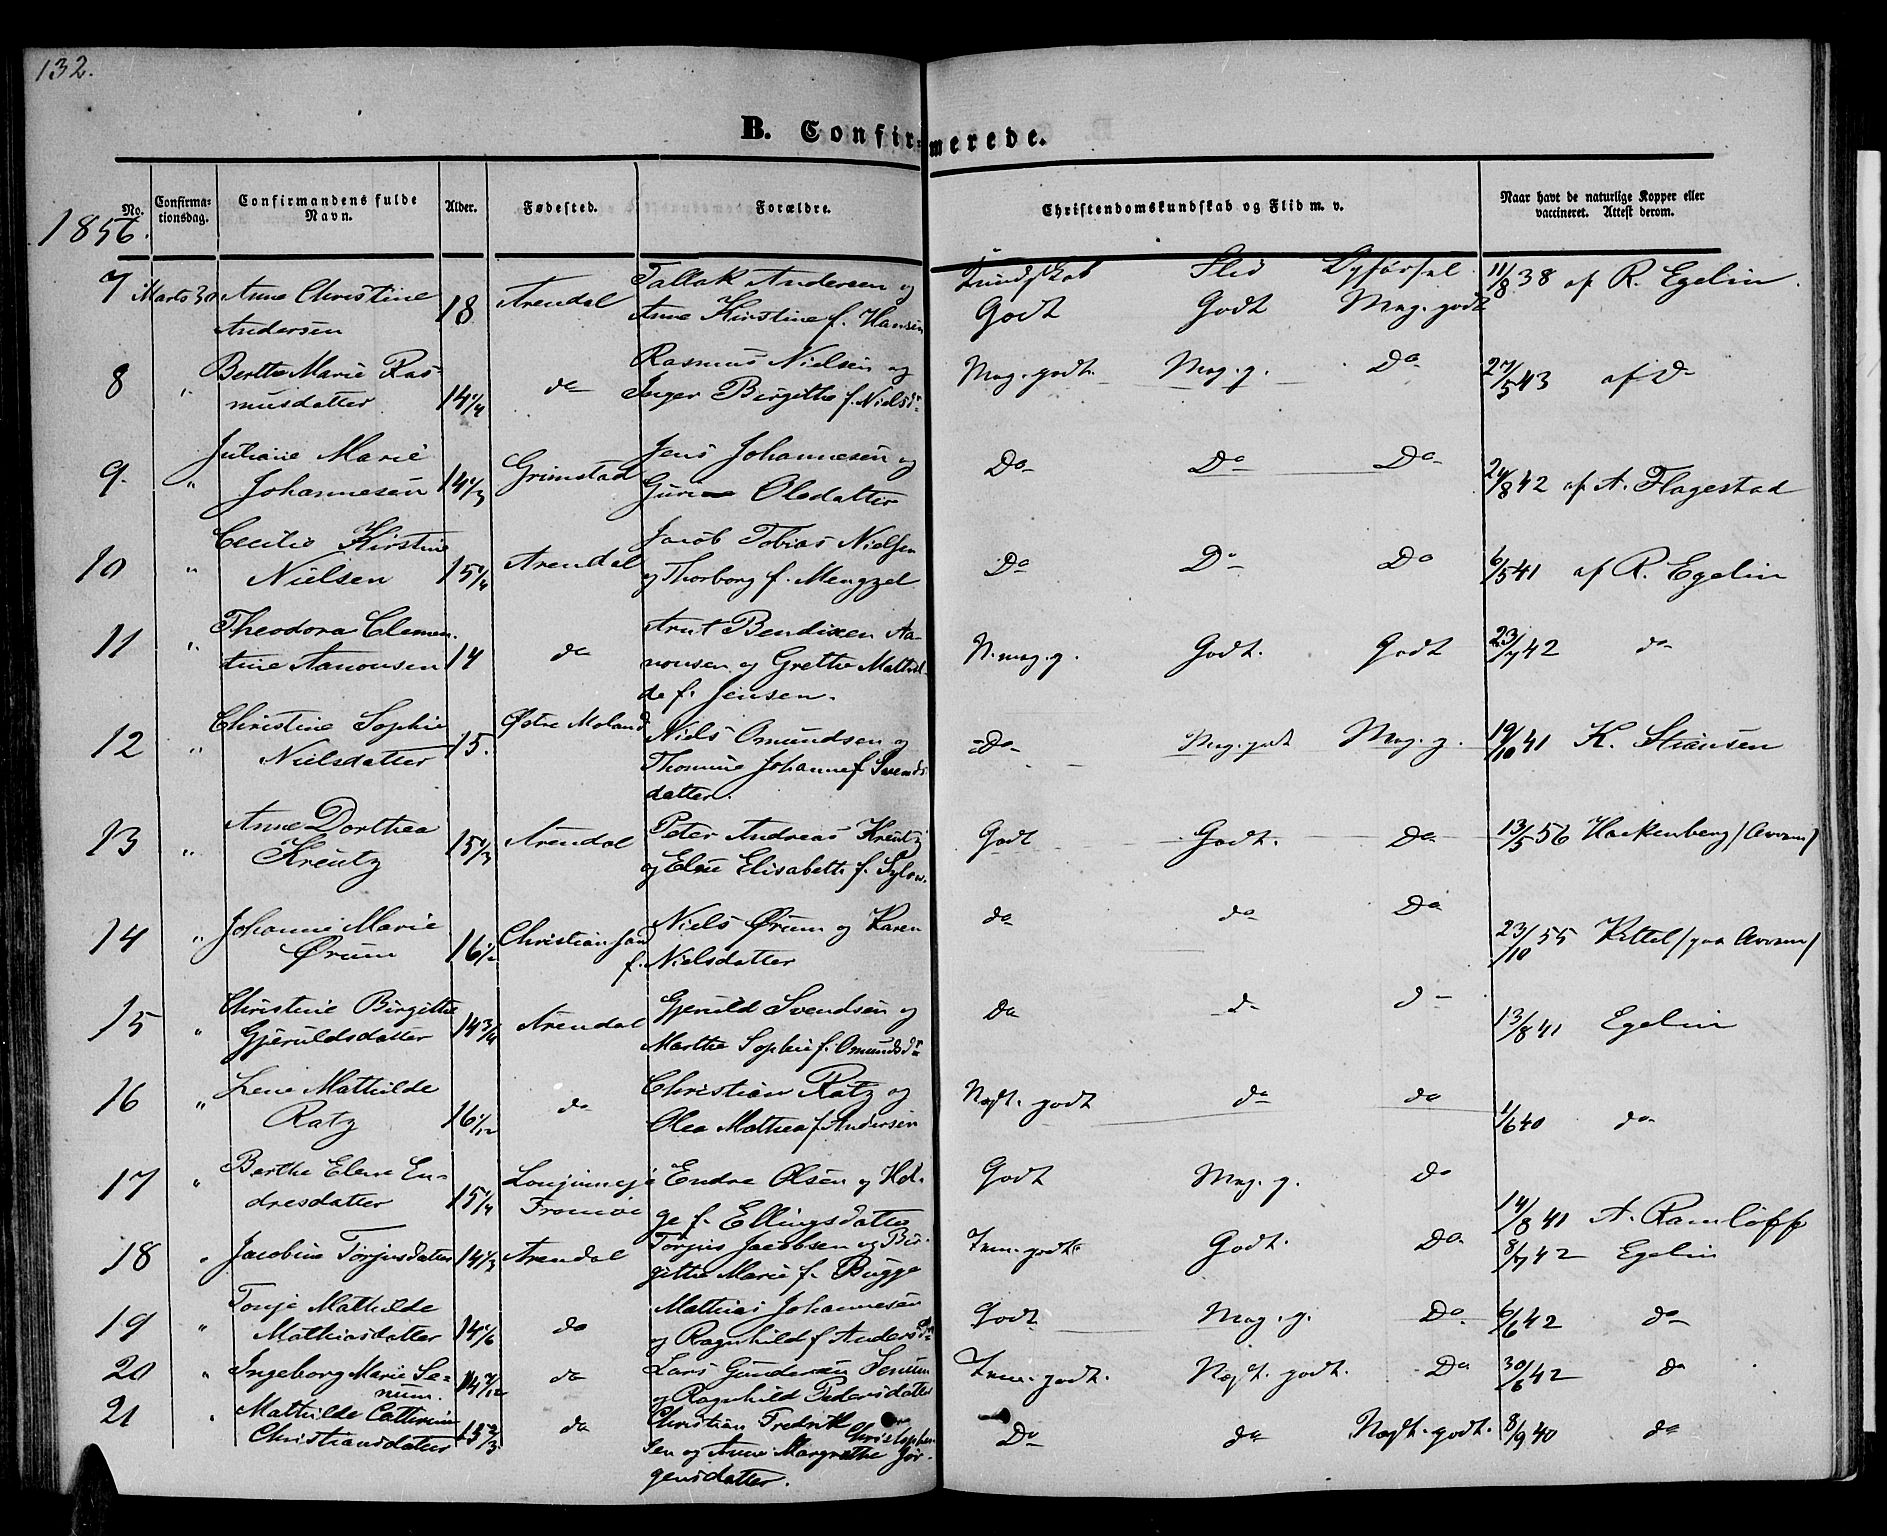 132.
B. Confirmerede.
No. Confirmationsdag. Confirmandens fulde Navn. Alder. Fødested. Forældre. Christendomskundskab og Flid m. v. Naar havt de naturlige Kopper eller vaccineret. Attest derom.
1856.
Kundskab Flid Opførsel
7 Marts 30 Anne Christine Andersen 18 Arendal Tallak Andersen og Anne Kirstine f. Hansen Godt Godt Meg. godt 11/8 38 af R. Egelin.
8 " Berthe Marie Rasmusdatter 14 1/4 do Rasmus Nielsen og Inger Birgithe f. Nielsdr Meg. godt. Meg. g. Do 27/5 43 af Do
9. " Juliane Marie Johannesen 14 1/3 Grimstad Jens Johannesen og Guri Olsdatter Do Do Do 24/8 42 af A. Flagestad
10 " Cecilie Kirstine Nielsen 15 1/4 Arendal Jacob Tobias Nielsen og Thorborg f. Mengzel Do Do Do 6/5 41 af R. Egelin
11 " Theodora Clementine Aanonsen 14 do Arnt Bendixen Aanonsen og Grethe Mathilde f. Jensen. N. meg. g. Godt. Godt 23/7 42 do
12 " Christine Sophie Nielsdatter 15. Østre Moland Niels Omundsen og Thomine Johanne f. Svendsdatter. Do Meg. godt Meg. g. 19/10 41 K. Stiansen
13 " Anne Dorthea Kreutz 15 1/3 Arendal Peter Andreas Kreutz og Else Elisabeth f. Sylow. Godt Godt. Do 13/5 56 Hackenberg
14 " Johanne Marie Ørum 16 1/2 Christiansand Niels Ørum og Karen f. Nielsdatter do do Do 23/10 55 Kittel
15 " Christine Birgitte Gjeruldsdatter 14 3/4 Arendal Gjeruld Svendsen og Marthe Sophie f. Omundsdr Do d d 13/8 41 Egelin
16 " Lene Mathilde Ratz 16 1/12 do Christian Ratz og Olea Mathea f. Andersen Nogt. godt do do 1/6 40 do
17 " Berthe Elene Endresdatter 15 1/4 Tromøe Endre Olsen og Helge f. Ellingsdatter Godt Meg. g. do 14/8 41 A. Ramløff
18 " Jacobine Torjusdatter 14 1/3 Arendal Torjus Jacobsen og Birgitte Marie f. Bugge Tem. godt. Godt. Do. 8/7 42 Egelin
19 " Tonje Mathilde Mathiasdatter 14 1/6 do Mathias Johannesen og Ragnhild f. Andersdr Godt Meg. g. Do. 6/6 42 do
20 " Ingeborg Marie Senum. 14 7/12 do Lars Gundersen Senum og Ragnhild Pedersdatter Tem. godt. Nogt. godt. Do 30/6 42 do
21 " Mathilde Cathrine Christiansdatter 15 2/3 do Christian Fredrik Christophersen og Anne Margrethe Jørgensdatter. Do do Nogt. godt. 8/9 40 do